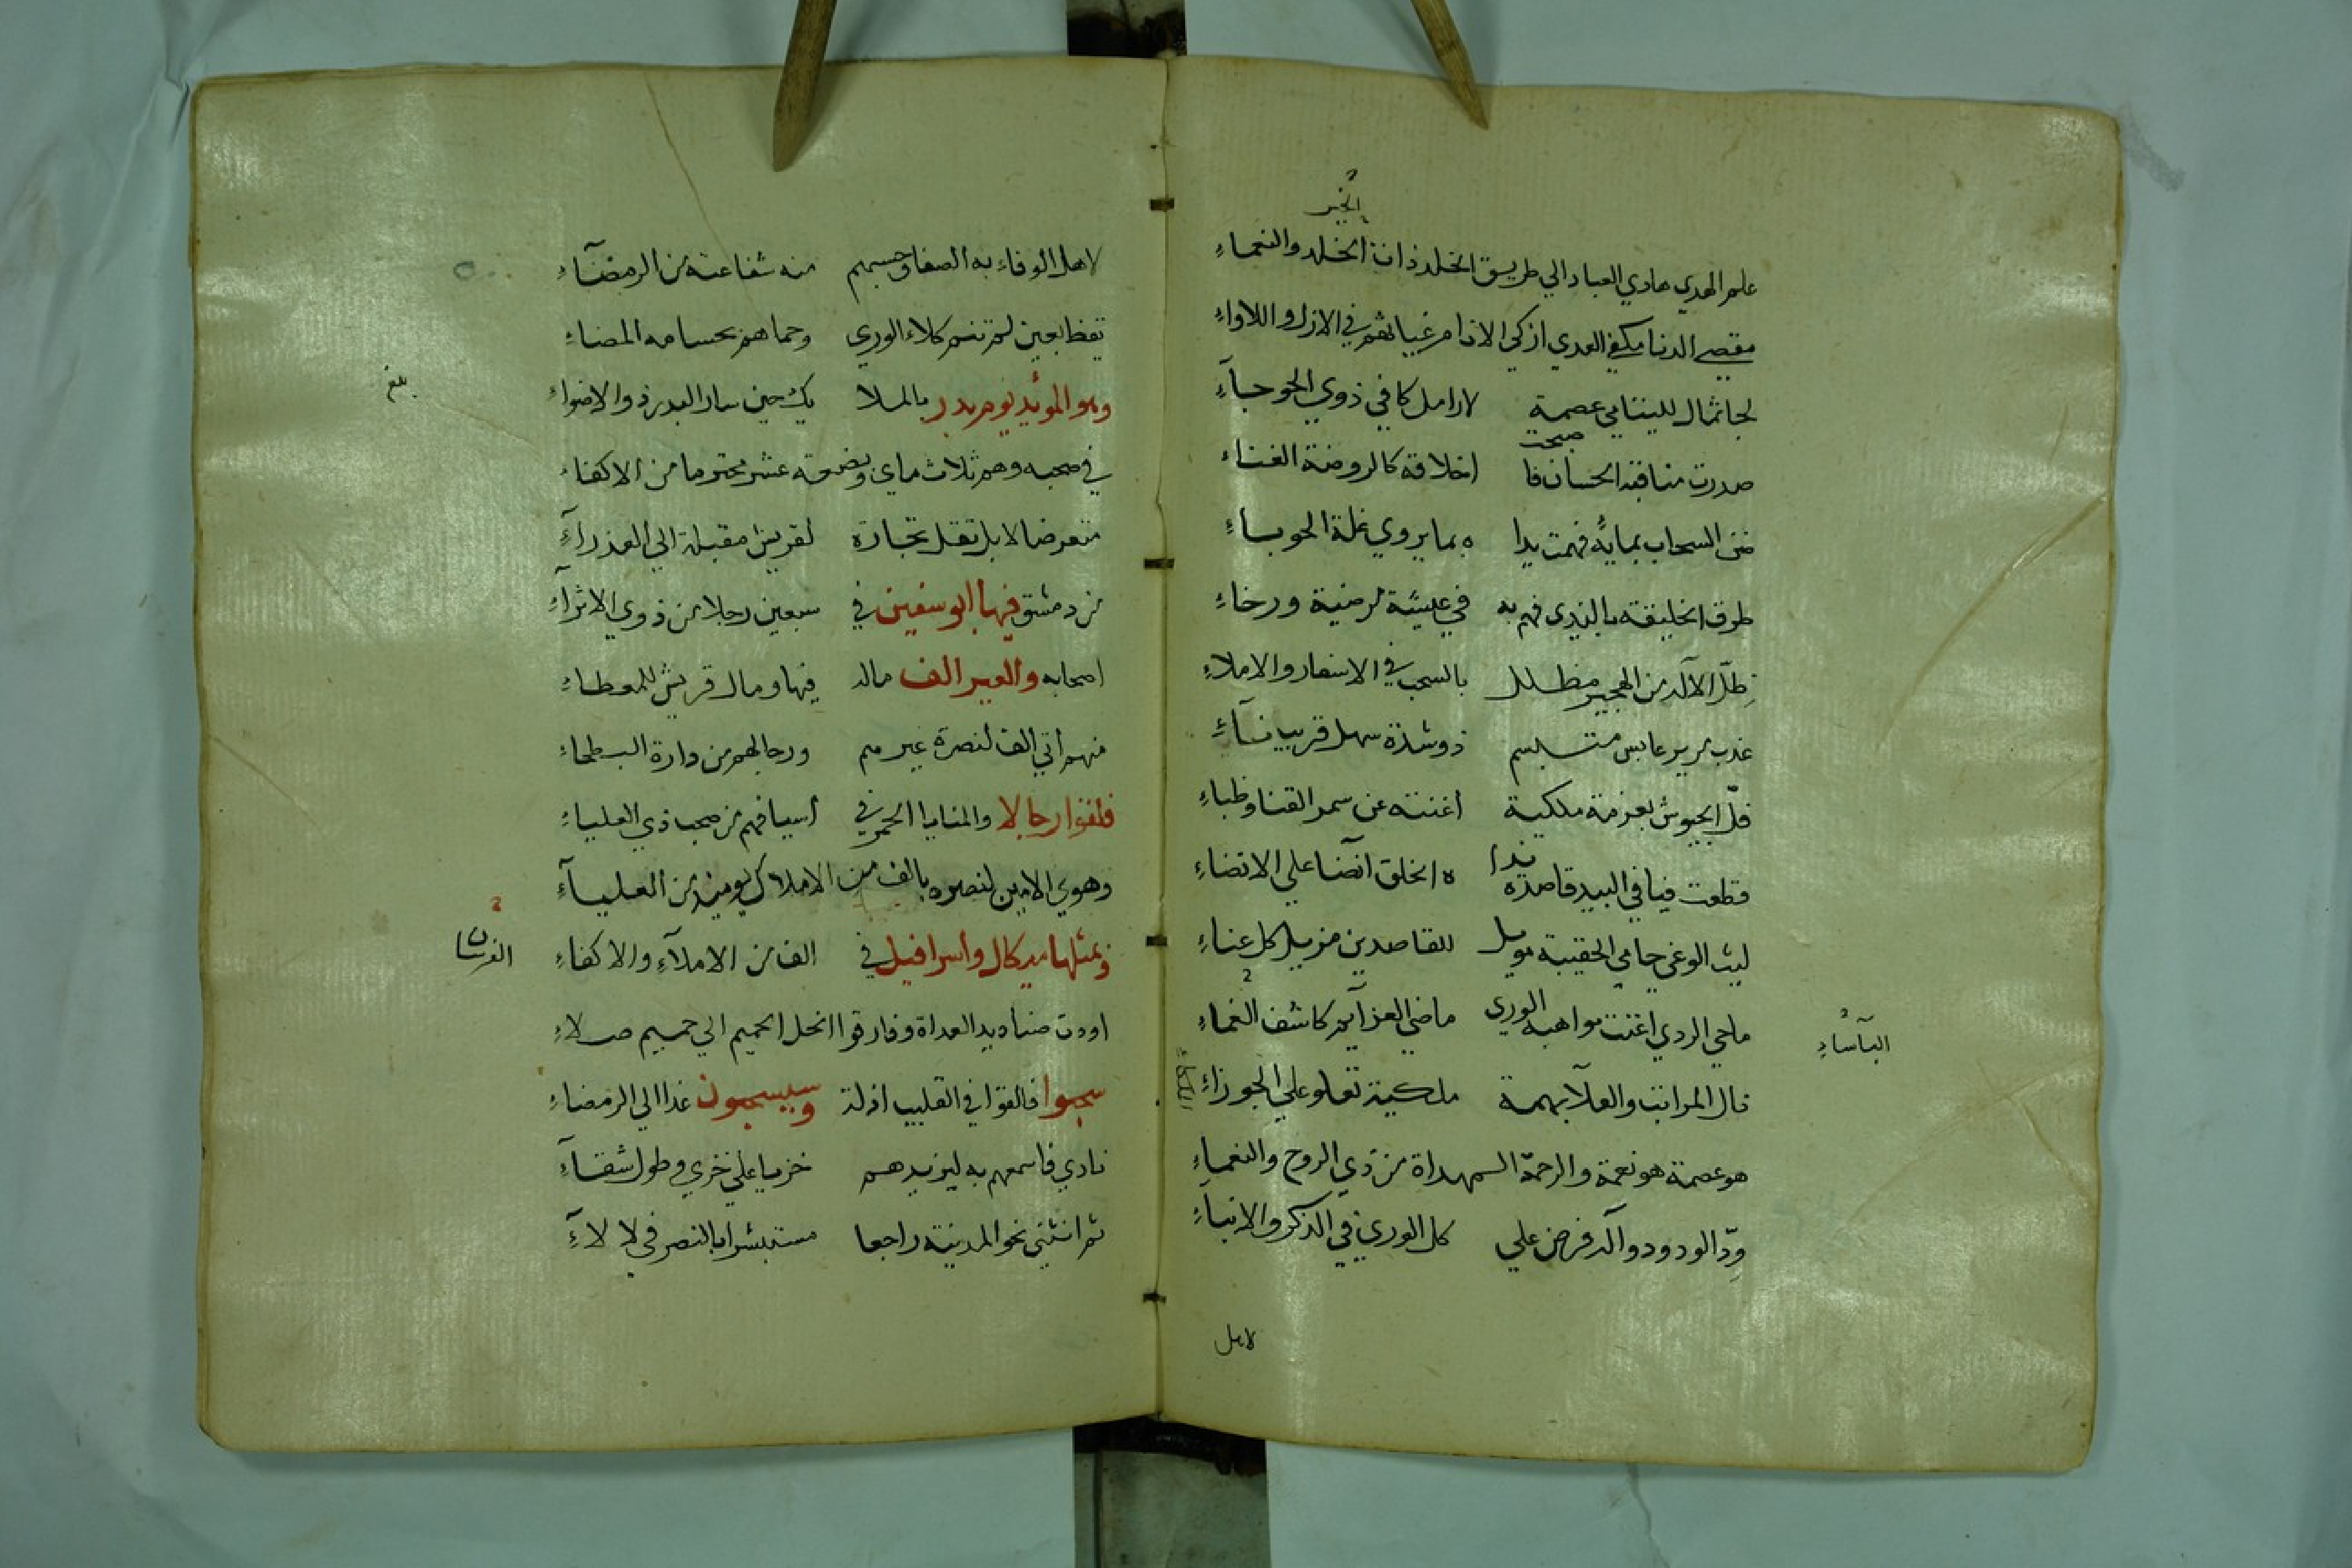 الخير
علم الهدي هادي العباد الي طريق الخلد ذات الخلد والنعماء
مقصي الدنا مكفي العدي ازكي الانام غياثهم في الازل واللاواء
لجا ثمال لليتامي عصمة لارامل كافي ذوي الحوجآء
صبحت
صدرت مناقبه الحسان فا اخلاقه كالروضة الغناء
ضن السحاب بمايهٔ فهمت يدا ه بما يروي غلة الحوباء
طرق الخليقة بالندي فهم به في عيشة مرضية ورخاء
ظل الآله من الهجير مظلل بالسحب في الاسفار والاملاء
عذب مرير عابس متبسم ذو شدة سهل قريب نآء
فل الجيوش بعزمة ملكية أغنته عن سمر القنا وظباء
قطعت فيافي البيد قاصدة يدا ه الخلق انضا علي الانضاء
ليث الوغي حامي الحقيبة مويل للقاصدين مزيل كل عناء
ماحي الردي اغنت مواهبه الوري ماضي العزآيم كاشف الغماء
البأساء
نال المراتب والعلآ بهمة ملكية تعلو علي الجوزاء
هو عصمة هو نعمة والرحمة المهداة من ذي الروح والنعماء
ود الودود وآله فرض علي كل الوري في الذكر والانباء
لاهل
لاهل الوفاء به الصفا وحسبهم منه شفاعته من الرمضآء
يقظا بعين لم تنم كلاء الوري وحماهم بحسامه المضاء
وهو المؤيد يوم بدر بالملا يك حين سار البدر ذو الاضواء
بلغ
في صحبه وهم ثلاث ماي وبضعة عشر محترما من الاكفاء
متعرضا لابل تقل تجارة لقريش مقبلة الي العذرآء
من دمشق فيها ابو سفين في سبعين رجلا من ذوي الاثرآء
اصحابه والعير الف مالد فيها ومال قريش للعطاء
منهم أتي الف لنصرة عيرهم ورجالهم من دارة البطحاء
فلقوا رجالا والمنايا الحمر في أسيافهم من صحب ذي العلياء
وهوي الامين لنصره بالف من الاملاك يوميذ من العليآء
وبمثلها ميكال واسرافيل في الف من الاملآء والاكفاء
الفرسان
اودت صناديد العداة وفارقوا الخل الحميم الي حميم صلاء
سحبوا فالقوا في القليب اذلة وسيسحبون غدا الي الرمضاء
نادي فاسمعهم به ليزيدهم خزيا علي خزي وطول شقآء
ثم انثني نحو المدينة راجعا مستبشرا بالنصر في لالآء